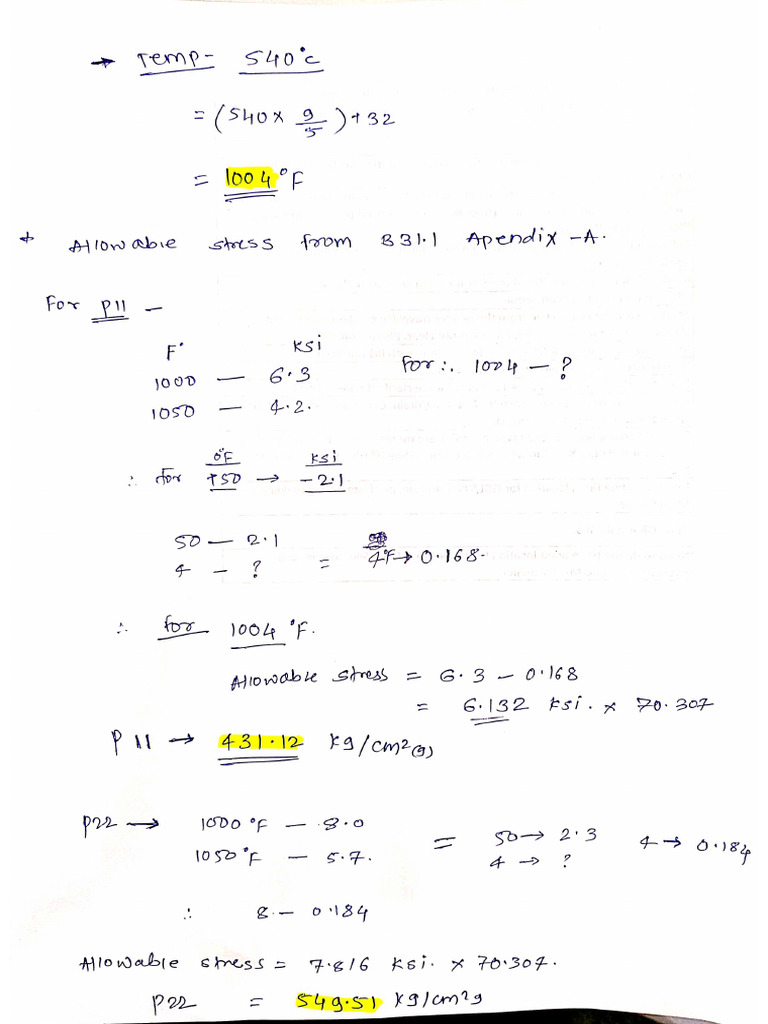 → Temp- 540°C
= (540 x 9/5) + 32
= 1004 °F
+ Allowable stress from B31.1 Apendix -A.
For P11 -
F° ksi
1000 — 6.3 For :. 1004 — ?
1050 — 4.2.
°F ksi
∴ for +50 → -2.1
50 — 2.1
4 - ? = 4°F → 0.168.
∴ for 1004 °F.
Allowable stress = 6.3 - 0.168
= 6.132 ksi. x 70.307
P11 → 431.12 kg/cm2(g)
P22 → 1000 °F — 8.0
1050 °F — 5.7. = 50 → 2.3 4 → 0.184
4 → ?
∴ 8 - 0.184
Allowable stress = 7.816 ksi. x 70.307.
P22 = 549.51 kg/cm2g